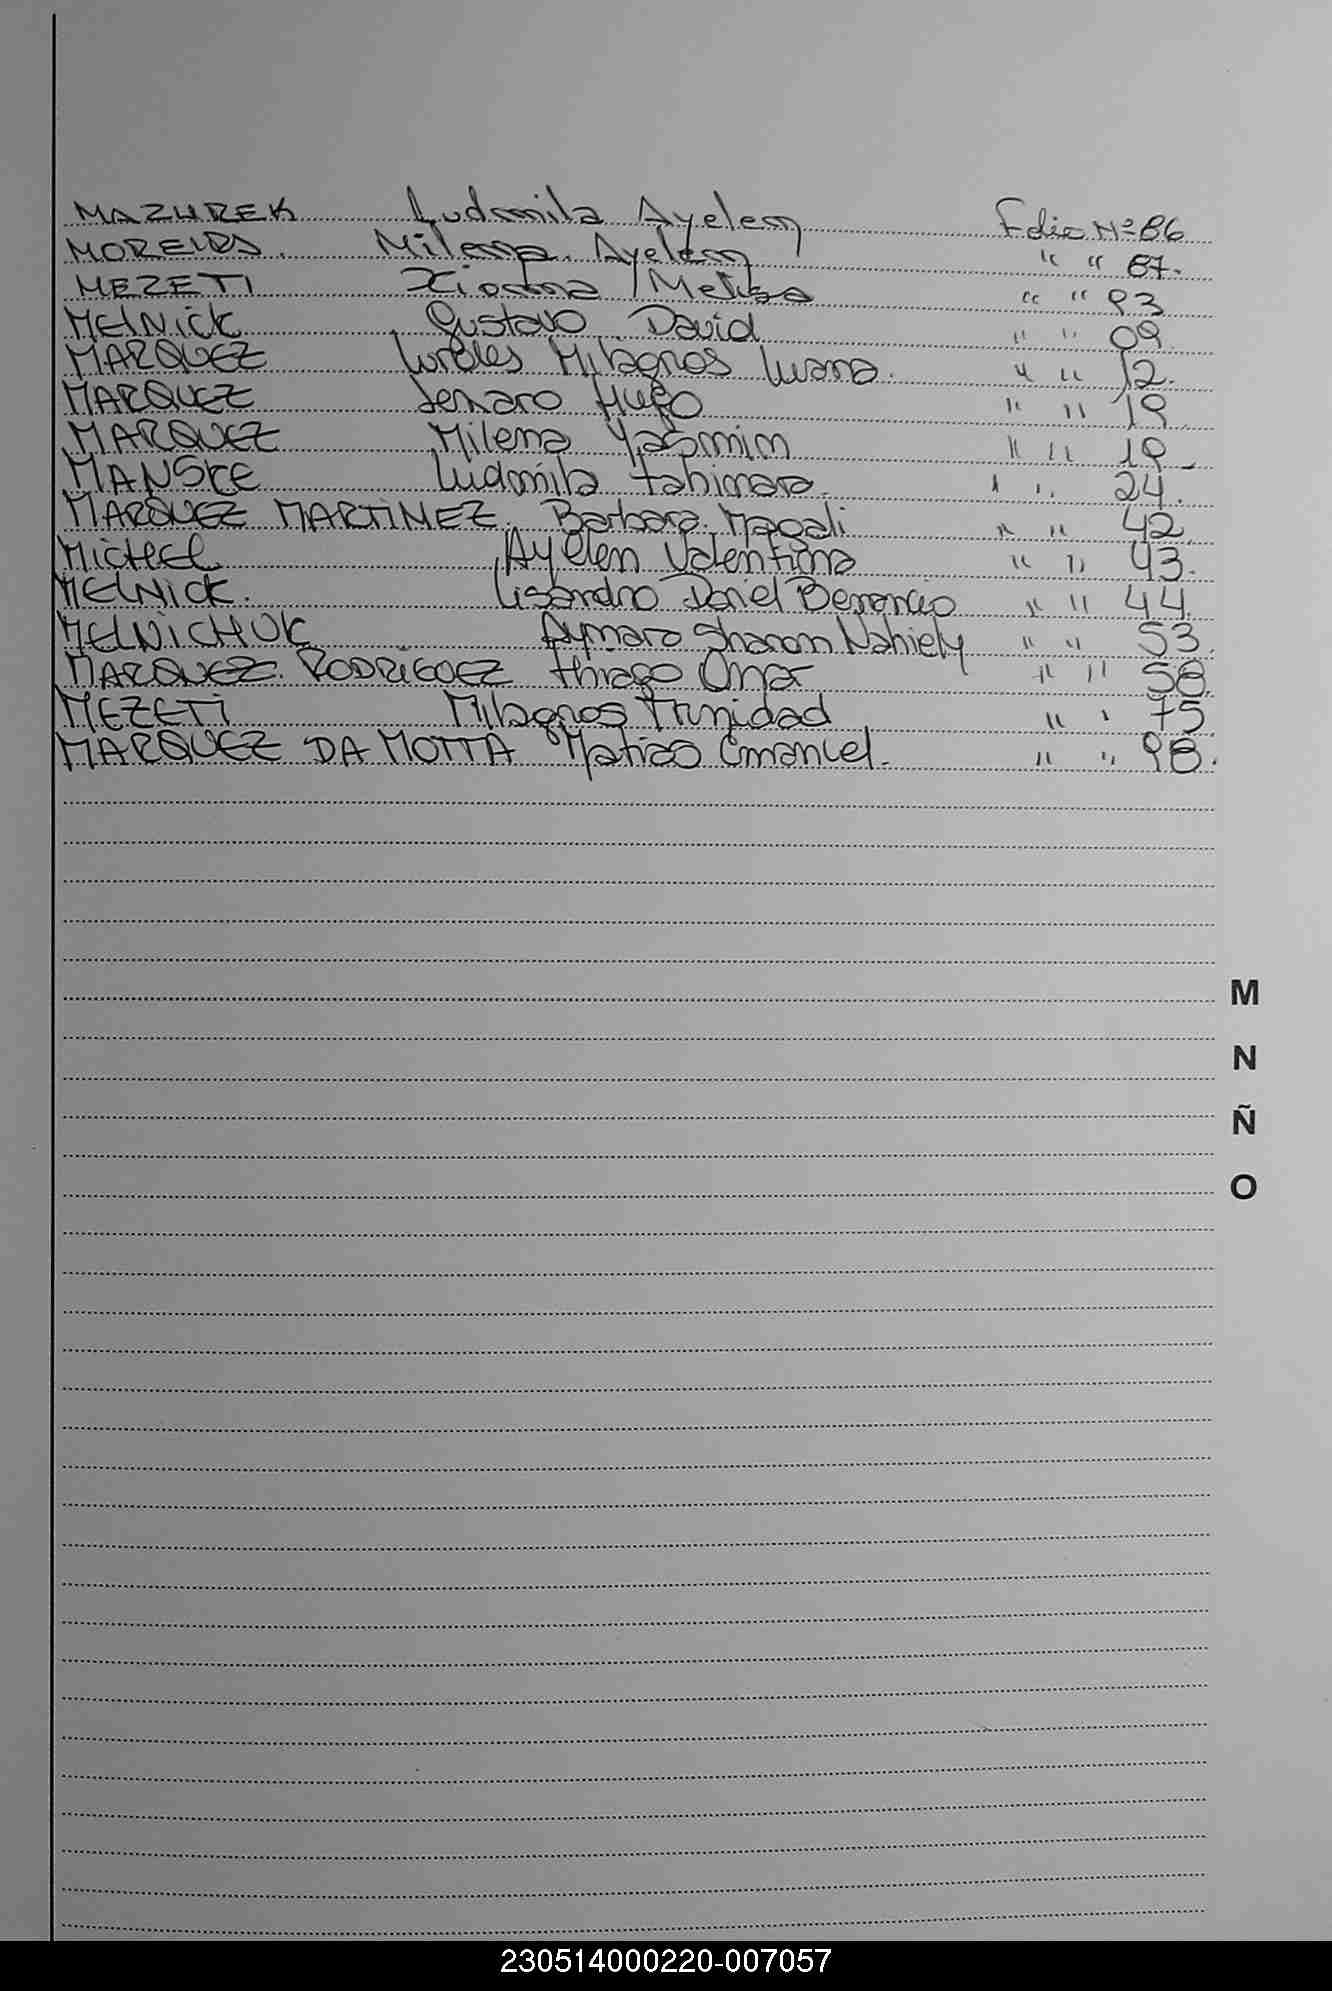 MAZUREK Ludmila Ayelen Folio Nº 86
MOREIRA. Milena Ayelen " " 87.
MEZETI Xiomna Melisa " " 93
MELNICK Gustavo David " " 09
MARQUEZ Lurdes Milagros Luana. " " 12.
MARQUEZ Jenaro Hugo " " 19
MARQUEZ Milena Yasmin " " 19
MANSKE Ludmila Tahimara. " " 24.
MARQUEZ MARTINEZ. Barbara Magali " " 42
MICHEL Ayelen Valentina " " 43.
MELNICK. Lisandro Daniel " " 44
MELNICHUK Aymara Sharon Nahiely " " 53.
MARQUEZ RODRIGUEZ Thiago Omar " " 58
MEZETI Milagros Trinidad " " 75
MARQUEZ DA MOTTA Matias Emanuel. " " 98.
M
N
Ñ
O
230514000220-007057